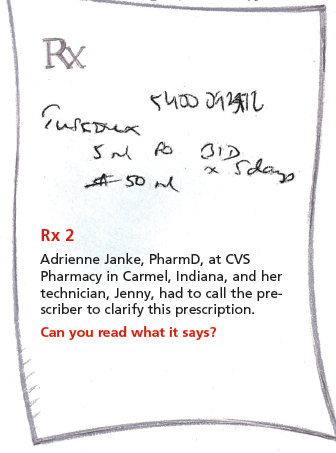 Rx
5 ml PO BID
x 5 days
# 50 ml
Rx 2
Adrienne Janke, PharmD, at CVS
Pharmacy in Carmel, Indiana, and her
technician, Jenny, had to call the pre-
scriber to clarify this prescription.
Can you read what it says?